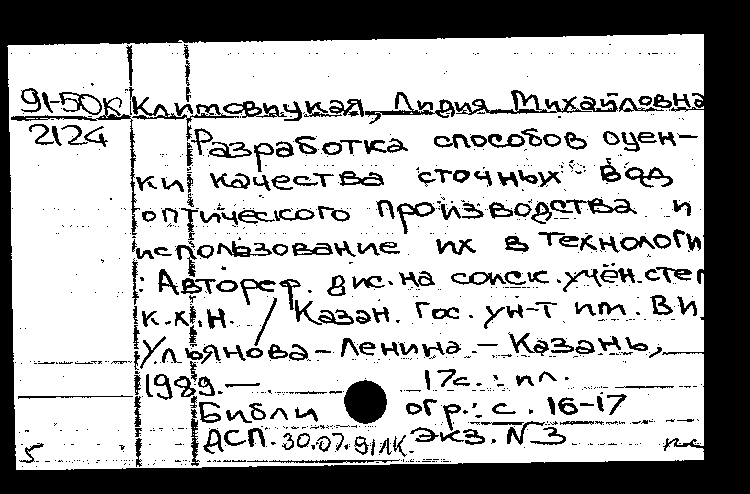 91-50к Климовицкая, Лидия Михайловна
2124 Разработка способов оцен-
ки качества сточных вод
оптического производства и
использование их в технологи
: Автореф. дис. на соиск. учён. степ
к.х.н. / Казан. гос. ун-т им. В.И.
Ульянова-Ленина. - Казань,
1989. — 17с. : ил.
Библиогр.: с. 16-17
5 ДСП. 30.07.91ЛК. экз. N 3